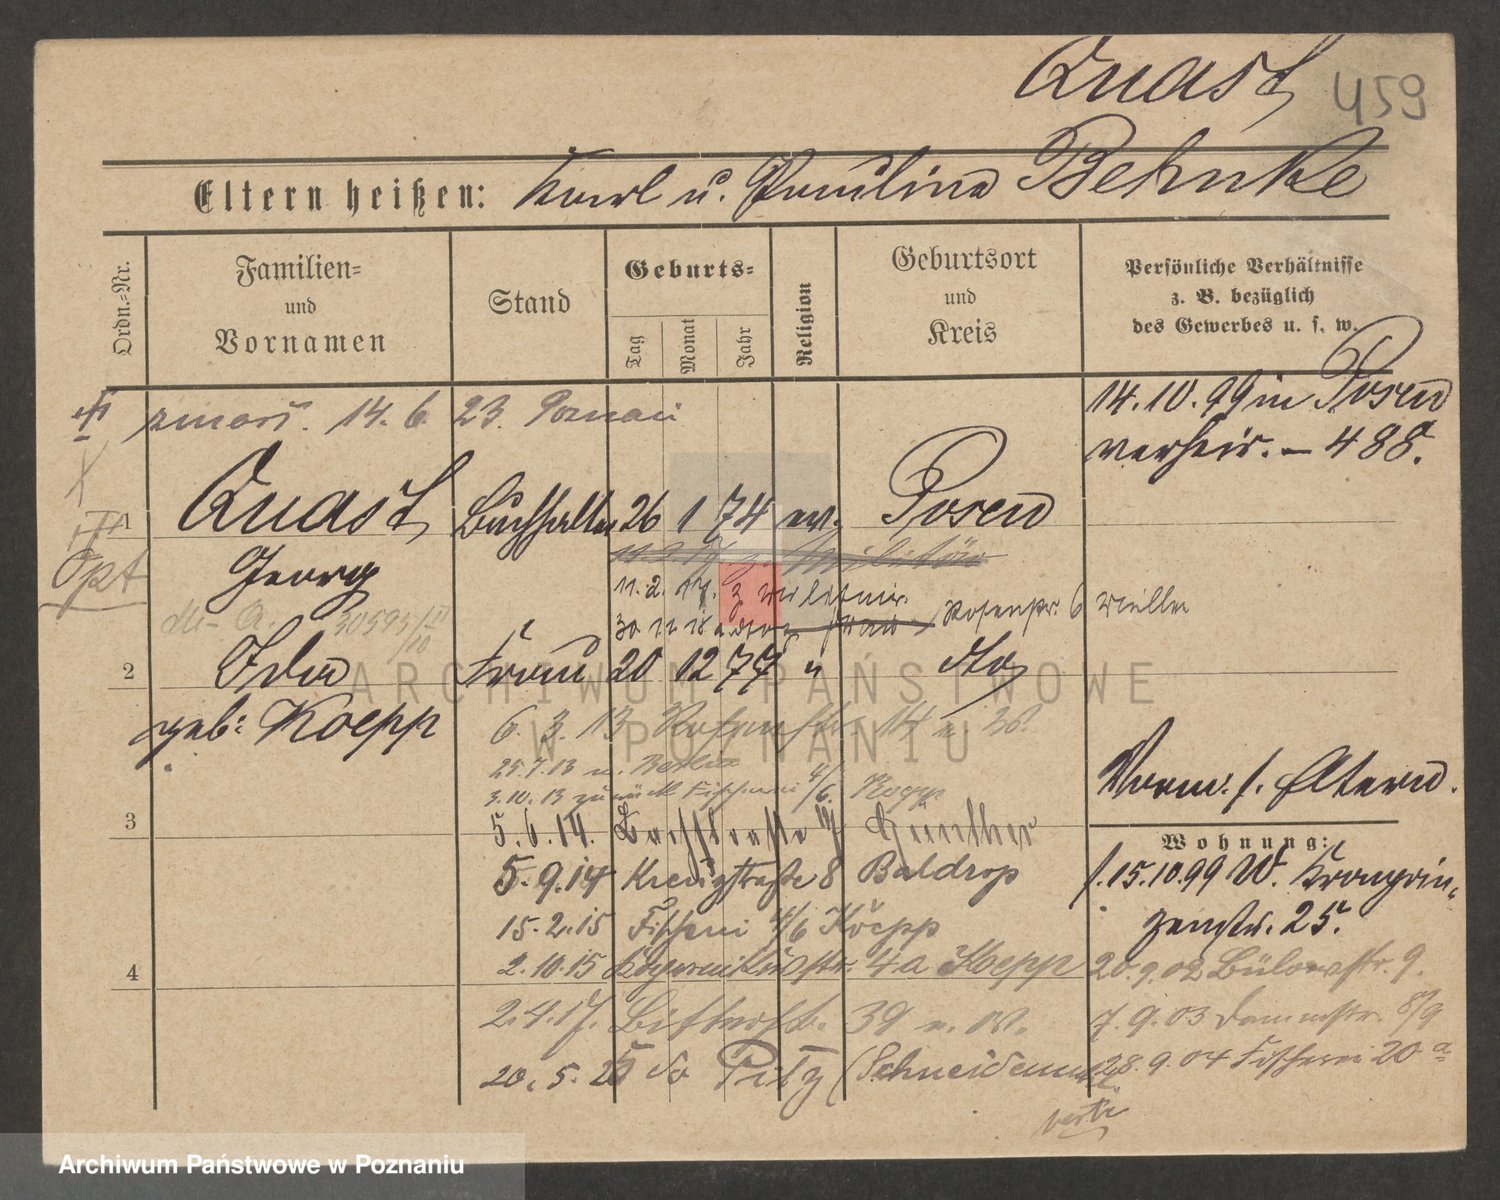 Quast 459
Eltern heißen: Karl u. Pauline Behnke
Ordn.-Nr.
Familien=
und
Vornamen
Stand
Geburts=
Tag
Monat
Jahr
Religion
Geburtsort
und
Kreis
Persönliche Verhältnisse
z. B. bezüglich
des Gewerbes u. s. w.
zmarł. 14. 6. 23. Poznań
14.10.99 in Posen
verheir. – 488.
1 Quast Buchhalter 26 1 74 ev. Posen
Opt
Georg
11. 2. 17. z Militär
30 11 18 Rosenstr. 6 Müller
2 Ida Frau 20 12 77 " dto
geb: Koepp
6. 3. 13 14
25.7.13 n. Berlin
3.10.13 zurück Fischerei 4/6. Koepp
Vorm. s. Eltern.
3
5.6.14. Günther
Wohnung:
5.9.14 Kreuzstraße 8 Baldrop
s. 15.10.99 W. Kronprin-
zenstr. 25.
15.2.15 Fischerei 4/6 Koepp
4
2.10.15 4a Koepp
20.9.02 Bülowstr. 9.
2.4.17. 39
7.9.03 Dammstr. 8/9
20.5. do
28.9.04 Fischerei 20 a
ARCHIWUM PAŃSTWOWE
W POZNANIU
Archiwum Państwowe w Poznaniu